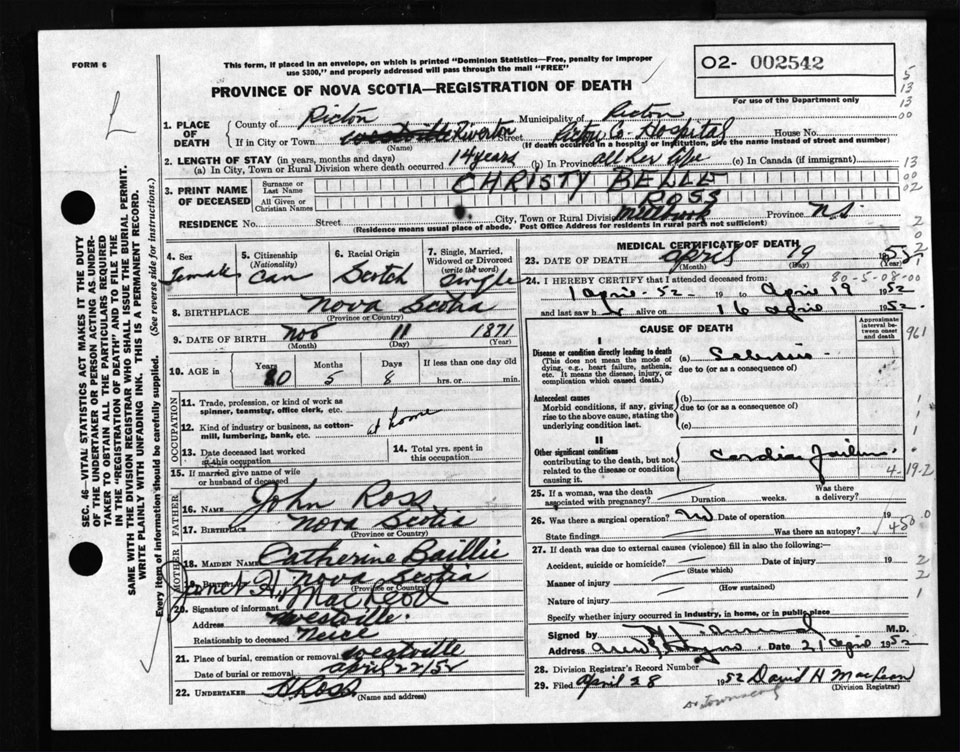 FORM 6
This form, if placed in an envelope, on which is printed "Dominion Statistics—Free, penalty for improper
use $300," and properly addressed will pass through the mail "FREE"
O2- 002542
For use of the Department only
PROVINCE OF NOVA SCOTIA—REGISTRATION OF DEATH
1. PLACE OF DEATH
County of Pictou Municipality of Pictou
If in City or Town Westville Riverton Street Pictou Co. Hospital House No.
(Name) (If death occurred in a hospital or institution, give the name instead of street and number)
2. LENGTH OF STAY (in years, months and days)
(a) In City, Town or Rural Division where death occurred 14 years (b) In Province all her life (c) In Canada (if immigrant)
3. PRINT NAME OF DECEASED
Surname or Last Name CHRISTY BELLE
All Given or Christian Names ROSS
RESIDENCE No. Street City, Town or Rural Division Millbrook Province N.S.
(Residence means usual place of abode. Post Office Address for residents in rural parts not sufficient)
4. Sex Female
5. Citizenship (Nationality) Can
6. Racial Origin Scotch
7. Single, Married, Widowed or Divorced (write the word) Single
8. BIRTHPLACE Nova Scotia
(Province or Country)
9. DATE OF BIRTH Nov 11 1871
(Month) (Day) (Year)
10. AGE in Years 80 Months 5 Days 8 If less than one day old hrs. or min.
OCCUPATION
11. Trade, profession, or kind of work as spinner, teamster, office clerk, etc.
12. Kind of industry or business, as cotton-mill, lumbering, bank, etc. at home
13. Date deceased last worked at this occupation
14. Total yrs. spent in this occupation
15. If married give name of wife or husband of deceased
FATHER
16. NAME John Ross
17. BIRTHPLACE Nova Scotia
MOTHER
18. MAIDEN NAME Catherine Baillie
19. Nova Scotia
(Province or Country)
20. Signature of informant Janet H. MacLeod
Address Westville
Relationship to deceased Neice
21. Place of burial, cremation or removal Westville
Date of burial or removal April 22/52
22. UNDERTAKER H Ross
(Name and address)
MEDICAL CERTIFICATE OF DEATH
23. DATE OF DEATH April 19 1952
(Month) (Day) (Year)
80-5-08-00
24. I HEREBY CERTIFY that I attended deceased from:
1 April - 52 19 to April 19 1952
and last saw h alive on 16 April 1952
CAUSE OF DEATH
Approximate interval between onset and death
I
Disease or condition directly leading to death (a)
(This does not mean the mode of dying, e.g., heart failure, asthenia, etc. It means the disease, injury, or complication which caused death.)
due to (or as a consequence of)
Antecedent causes (b)
Morbid conditions, if any, giving rise to the above cause, stating the underlying condition last.
due to (or as a consequence of)
(c)
II
Other significant conditions contributing to the death, but not related to the disease or condition causing it. Cardiac failure
4-19-2
25. If a woman, was the death associated with pregnancy? Duration weeks. Was there a delivery?
26. Was there a surgical operation? Date of operation 19
State findings Was there an autopsy?
27. If death was due to external causes (violence) fill in also the following:—
Accident, suicide or homicide? Date of injury 19
(State which)
Manner of injury
(How sustained)
Nature of injury
Specify whether injury occurred in industry, in home, or in public place
Signed by M.D.
Address New Glasgow Date 21 April 1952
28. Division Registrar's Record Number
29. Filed April 28 1952 David H MacLean
(Division Registrar)
SEC. 46—VITAL STATISTICS ACT MAKES IT THE DUTY
OF THE UNDERTAKER OR PERSON ACTING AS UNDER-
TAKER TO OBTAIN ALL THE PARTICULARS REQUIRED
IN THE "REGISTRATION OF DEATH" AND TO FILE THE
SAME WITH THE DIVISION REGISTRAR WHO SHALL ISSUE THE BURIAL PERMIT.
WRITE PLAINLY WITH UNFADING INK. THIS IS A PERMANENT RECORD.
Every item of information should be carefully supplied. (See reverse side for instructions.)